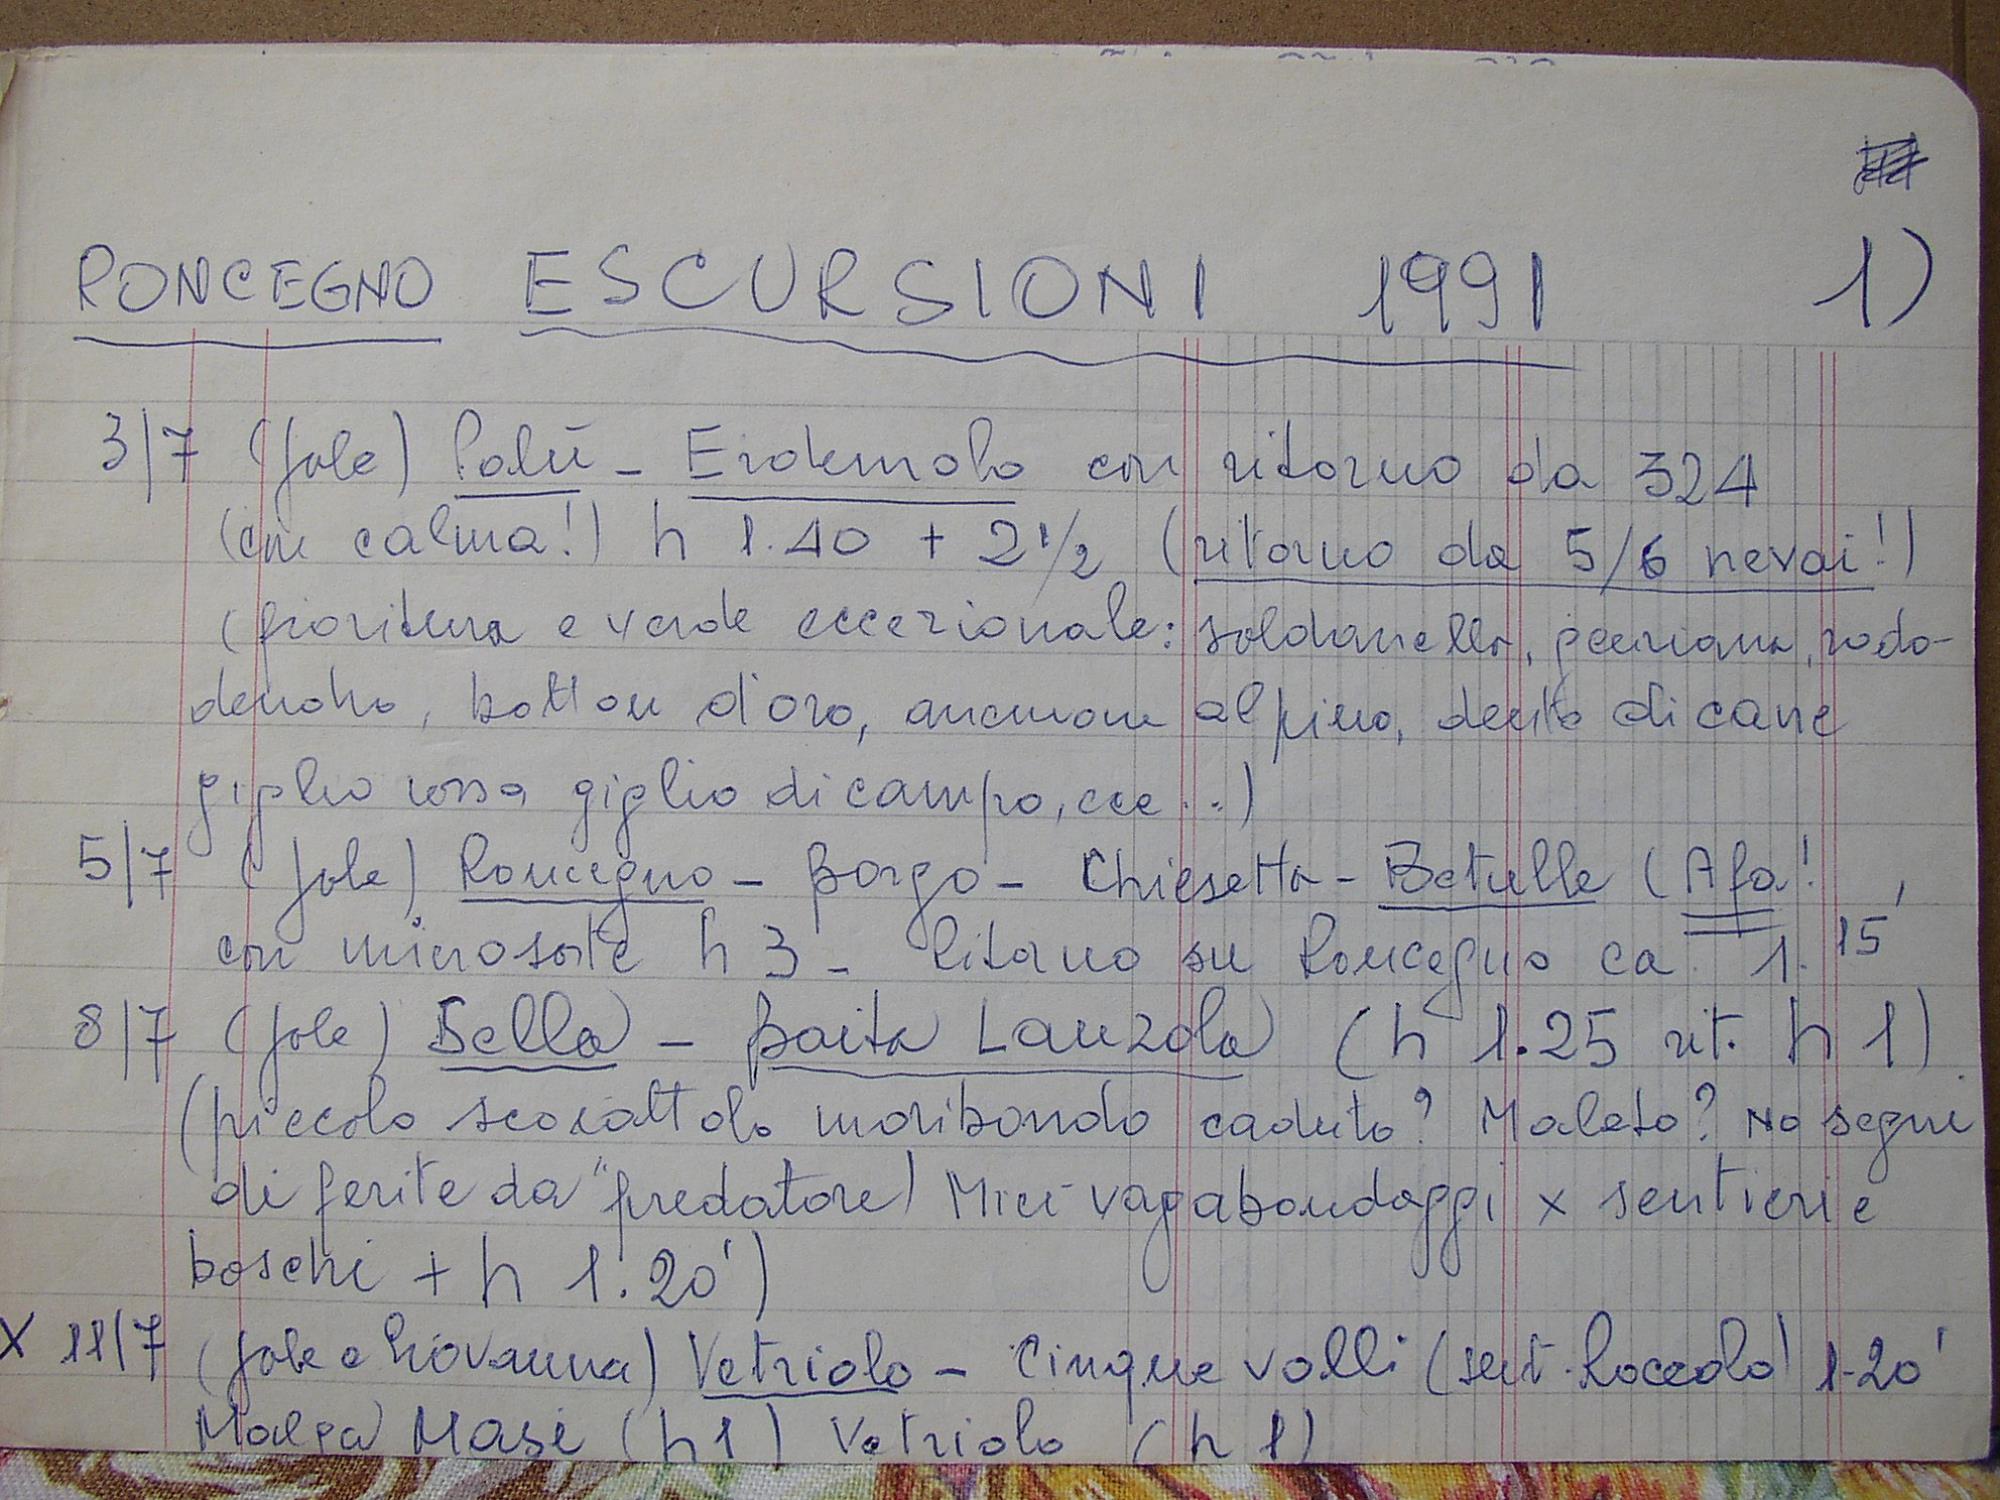 RONCEGNO ESCURSIONI 1991 1)
3/7 (Jole) Palù - Erdemolo con ritorno da 324
(con calma!) h 1.40 + 2 1/2 (ritorno da 5/6 nevai!)
(fioritura e verde eccezionale: soldanella, genziana, rodo-
dendro, botton d'oro, anemone alpino, dente di cane
giglio rosso giglio di campo, ecc...)
5/7 (Jole) Roncegno - Borgo - Chiesetta - Betulle (Afa!
con micrososte h 3 - Ritorno su Roncegno ca 1.15'
8/7 (Jole) Sella - Baita Lanzola (h 1.25 rit. h 1)
(piccolo scoiattolo moribondo caduto? Malato? No segni
di ferite da "predatore) Miei vagabondaggi x sentieri e
boschi + h 1.20')
X 11/7 (Jole e Giovanna) Vetriolo - Cinque valli (sent. Roccolo) 1.20'
Malga Masi (h 1) Vetriolo (h 1)